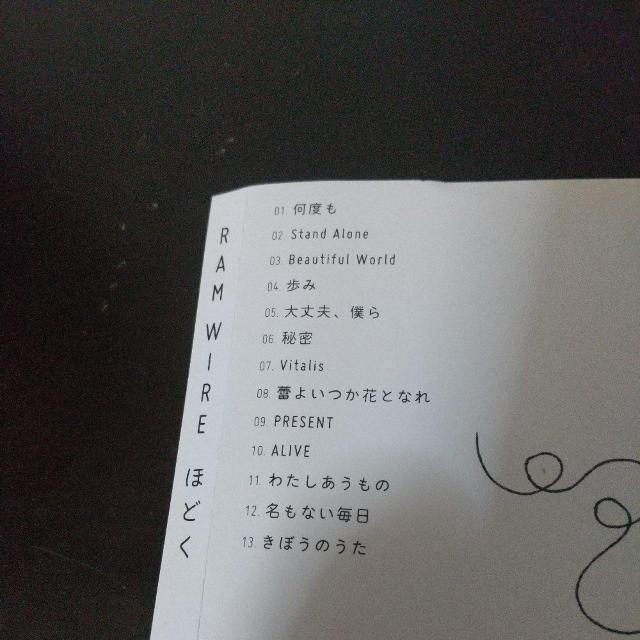 RAM WIRE ほどく
01. 何度も
02. Stand Alone
03. Beautiful World
04. 歩み
05. 大丈夫、僕ら
06. 秘密
07. Vitalis
08. 蕾よいつか花となれ
09. PRESENT
10. ALIVE
11. わたしあうもの
12. 名もない毎日
13. きぼうのうた